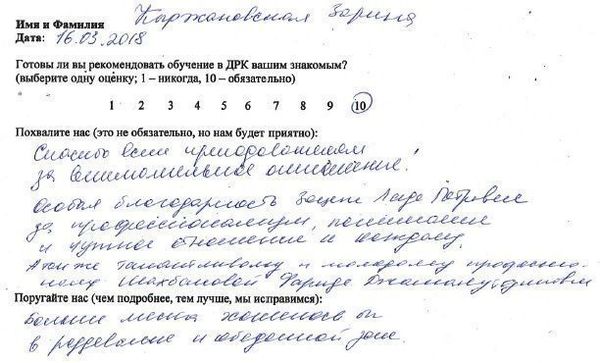 Имя и Фамилия Кыржановская Зарина
Дата: 16.03.2018
Готовы ли вы рекомендовать обучение в ДРК вашим знакомым?
(выберите одну оценку; 1 – никогда, 10 – обязательно)
1 2 3 4 5 6 7 8 9 10
Похвалите нас (это не обязательно, но нам будет приятно):
Спасибо всем преподавателям
за внимательное отношение.
Особая благодарность Зацепе Лидe Петровне
за профессионализм, понимание
и чуткое отношение к каждому.
А также талантливому и молодому
Шахбановой Фариде
Поругайте нас (чем подробнее, тем лучше, мы исправимся):
Больше места хотелось бы
в раздевалке и обеденной зоне.